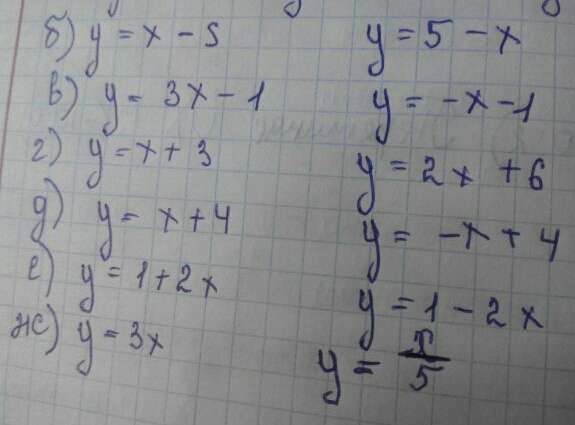 б) y = x - 5 y = 5 - x
в) y = 3x - 1 y = -x - 1
г) y = x + 3 y = 2x + 6
д) y = x + 4 y = -x + 4
е) y = 1 + 2x y = 1 - 2x
ж) y = 3x y =